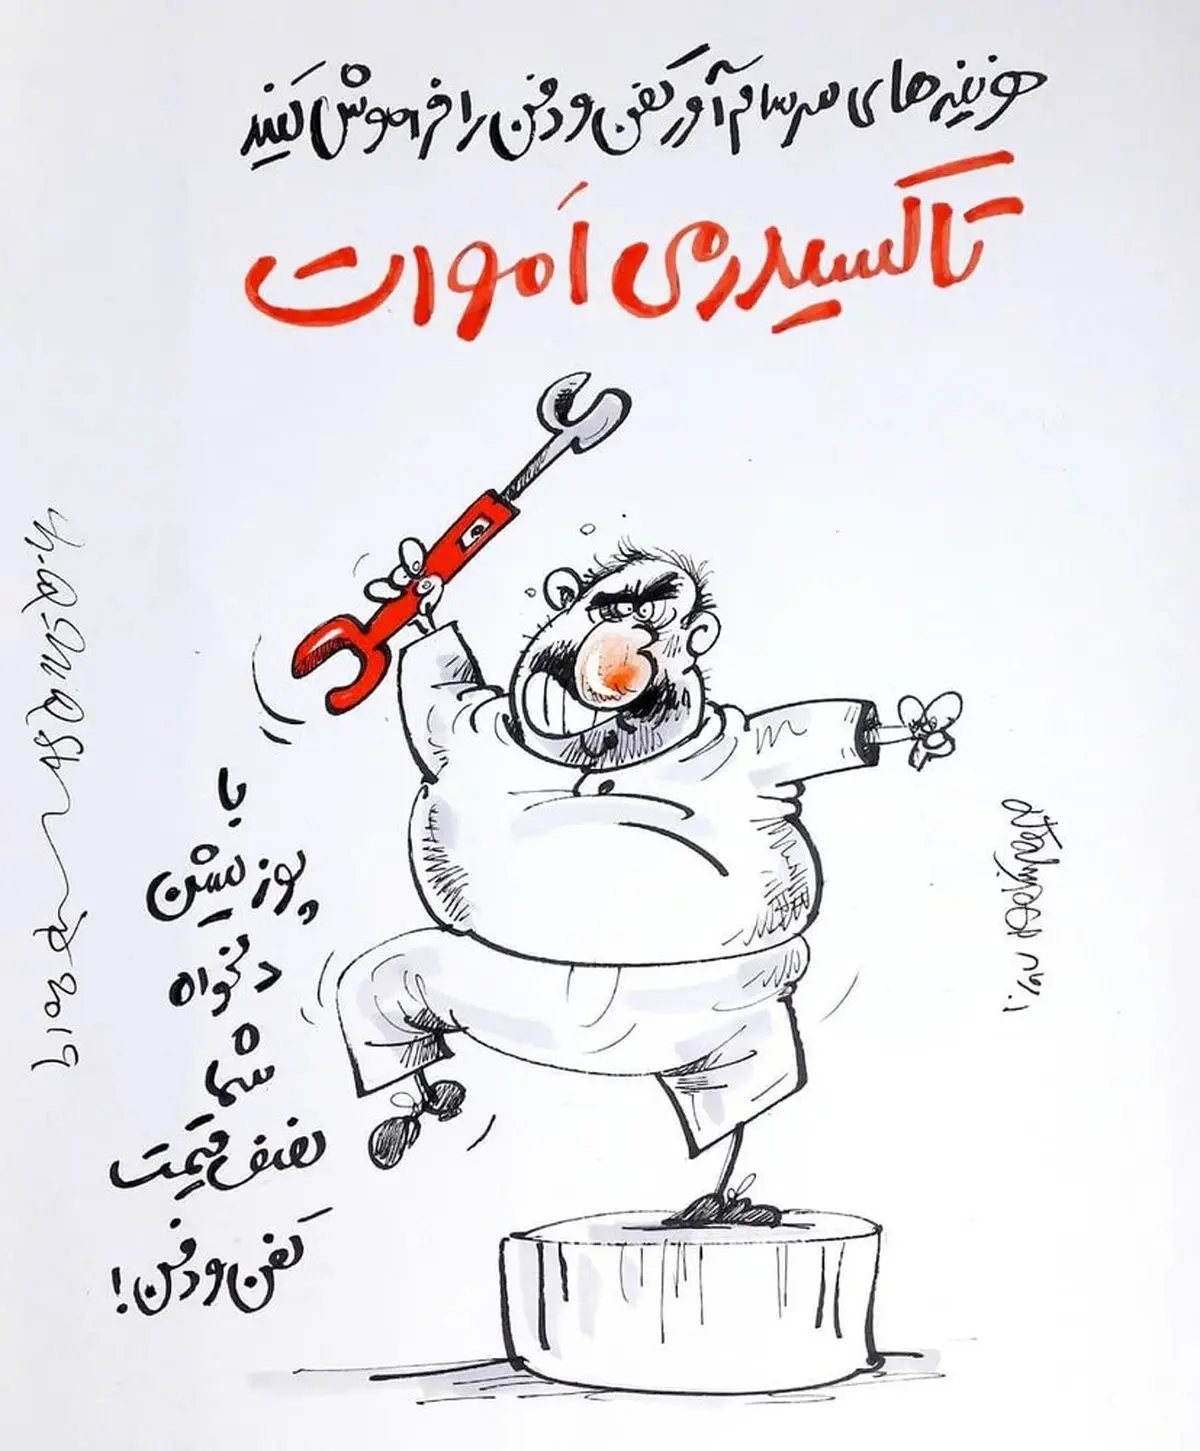 هزینه‌های سرسام‌آور کفن و دفن را فراموش کنید
تاکسیدرمی اَموات
با
پوزیشن
دلخواه
شما
نصف قیمت
کفن و دفن!
2019